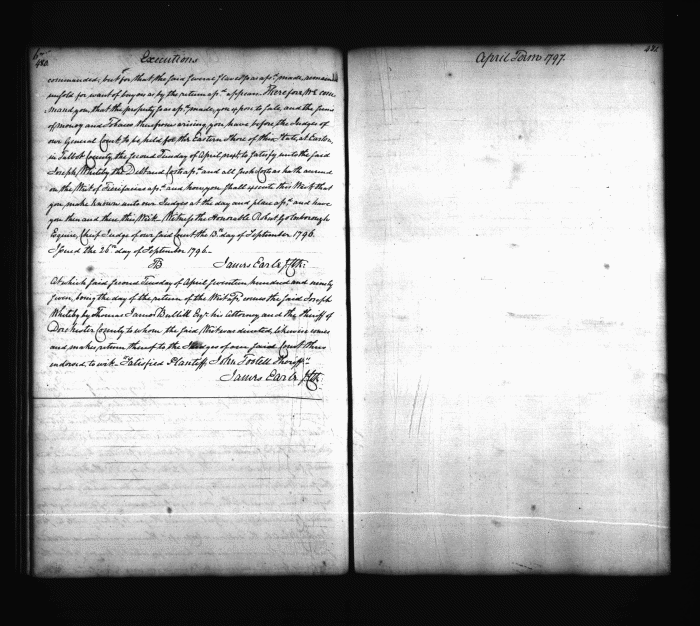 480
Executions
commanded, but for that the said several Slaves so as afs.d made remain
unsold for want of buyers as by the return afs.d appears. Therefore We com
mand you, that the property so as afs.d made, you expose to sale, and the sums
of money and Tobacco therefrom arising, you have before the Judges of
our General Court to be held for the Eastern Shore of this State, at Easton,
in Talbot County, the second Tuesday of April next to satisfy unto the said
Joseph Whiteley the Debt and Costs afs.d and all such Costs as hath accrued
on the Writ of Fierifacias afs.d and how you shall execute this Writ that
you make known unto our Judges at the day and place afs.d and have
you then and there this Writ. Witness the Honorable Robert Goldsborough
Esquire, Chief Judge of our said Court the 13th day of September 1796.
Issued the 26th day of September 1796.
James Earle Jr Clk:
At which said second Tuesday of April seventeen hundred and ninety
seven, being the day of the return of the Writ afs.d comes the said Joseph
Whiteley by Thomas James Bullitt Esqr. his Attorney and the Sheriff of
Dorchester County to whom the said Writ was directed, likewise comes
and makes return thereof to the Judges of our said Court thus
indorsed to wit. Satisfied Plaintiff, John Sheriff.
James Earle Jr Clk.
481
April Term 1797.